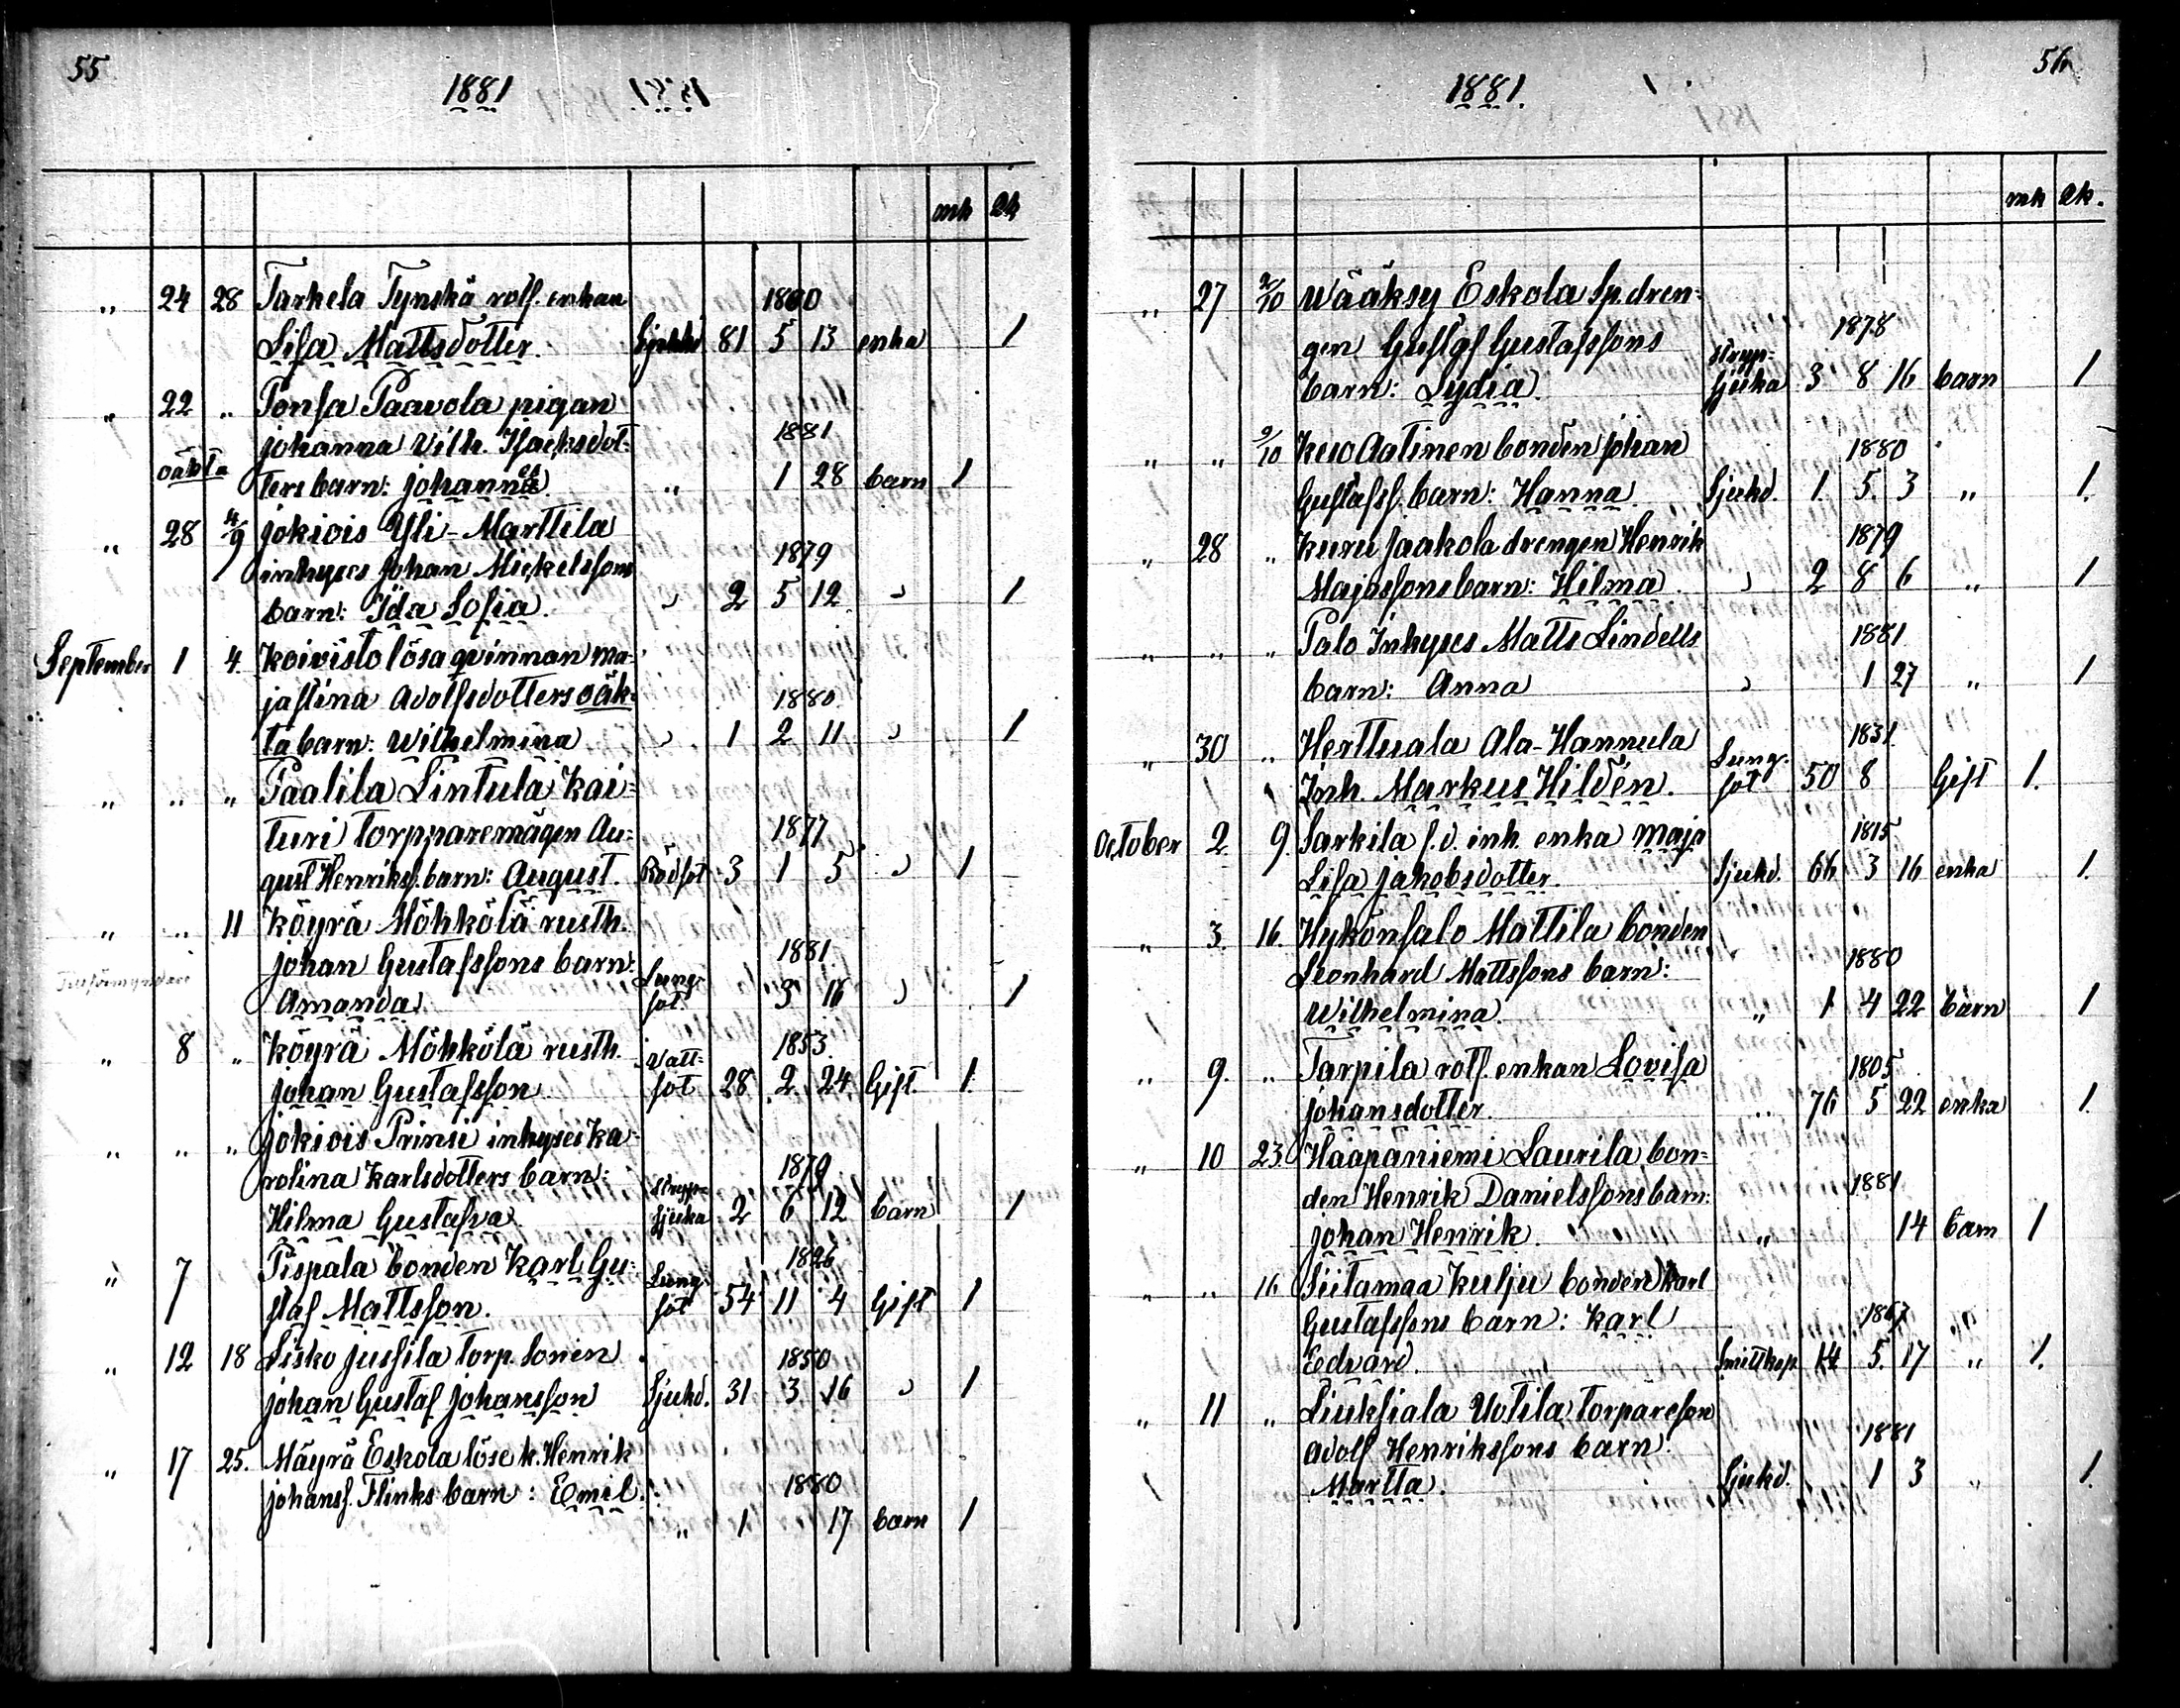 55
1881
mk qk
" 24 28 Tarkela Tynskä rotf. enkan 1800
Lisa Mattsdotter. Sjukd 81 5 13 enka 1
" 22 " Ponsa Paavola pigan
Johanna Vilh. Isacksdot- 1881
oäkta ters barn: Johannes. " 1 28 barn 1
" 28 4/9 Jokiois Yli-Marttila
inhyses Johan Mickelssons 1879
barn: Ida Sofia. " 2 5 12 " 1
September 1 4 Koivisto lösa qvinnan Ma-
jastina Adolfsdotters oäk- 1880
ta barn: Wilhelmina " 1 2 11 " 1
" " " Paalila Lintula Kai-
turi torpparemågen Au- 1877
gust Henrikss. barn: August. Rödsot 3 1 5 " 1
" " 11 Köyrä Möhkölä rusth.
Johan Gustafssons barn: 1881 Lung-
Amanda sot 3 16 " 1
" 8 " Köyrä Möhkölä rusth. Vatt- 1853
Johan Gustafsson. sot 28 2 24 Gift 1
" " " Jokiois Prinsi inhyses Ka-
rolina Karlsdotters barn: Stryp- 1879
Hilma Gustafva sjuka 2 6 12 barn 1
" 7 Pispala bonden Karl Gu- Lung- 1826
staf Mattsson. sot 54 11 4 Gift 1
" 12 18 Lisko Jussila torp. sonen 1850
Johan Gustaf Johansson Sjukd. 31 3 16 " 1
" 17 25. Mäyrä Eskola löse k. Henrik
Johanss. Flinks barn: Emil. 1880
" 1 17 barn 1
56
1881.
mk qk.
" 27 2/10 Wääksy Eskola Sp. dren-
gen Gustaf Gustafssons Stryp- 1878
barn: Lydia. sjuka 3 8 16 barn 1
" " 9/10 Keso Aatinen bonden Johan 1880
Gustafss. barn: Hanna. Sjukd. 1 5 3 " 1
" 28 " Kuru Jaakola drengen Henrik 1879
Majassons barn: Hilma. " 2 8 6 " 1
" " " Palo Inhyses Matts Lindells 1881
barn: Anna " 1 27 " 1
" 30 " Herttuala Ala-Hannula Lung- 1831
Inh. Markus Hildén. sot 50 8 Gift 1.
October 2 9. Sarkila f.d. inh. enka Maja 1815
Lisa Jakobsdotter. Sjukd. 66 3 16 enka 1.
" 3. 16. Hykönsalo Mattila bonden
Leonhard Mattssons barn: 1880
Wilhelmina. " 1 4 22 barn 1
" 9. " Tarpila rotf. enkan Lovisa 1805
Johansdotter. " 76 5 22 enka 1.
" 10 23. Haapaniemi Laurila bon-
den Henrik Danielssons barn: 1881
Johan Henrik. " 14 barn 1
" " 16 Siitamaa Kulju bonden Karl
Gustafssons barn: Karl 1867
Edvard. Smittkop. 14 5. 17 " 1.
" 11 " Liuksiala Uotila torpareson
Adolf Henrikssons barn: 1881
Martta. Sjukd. 1 3 " 1.